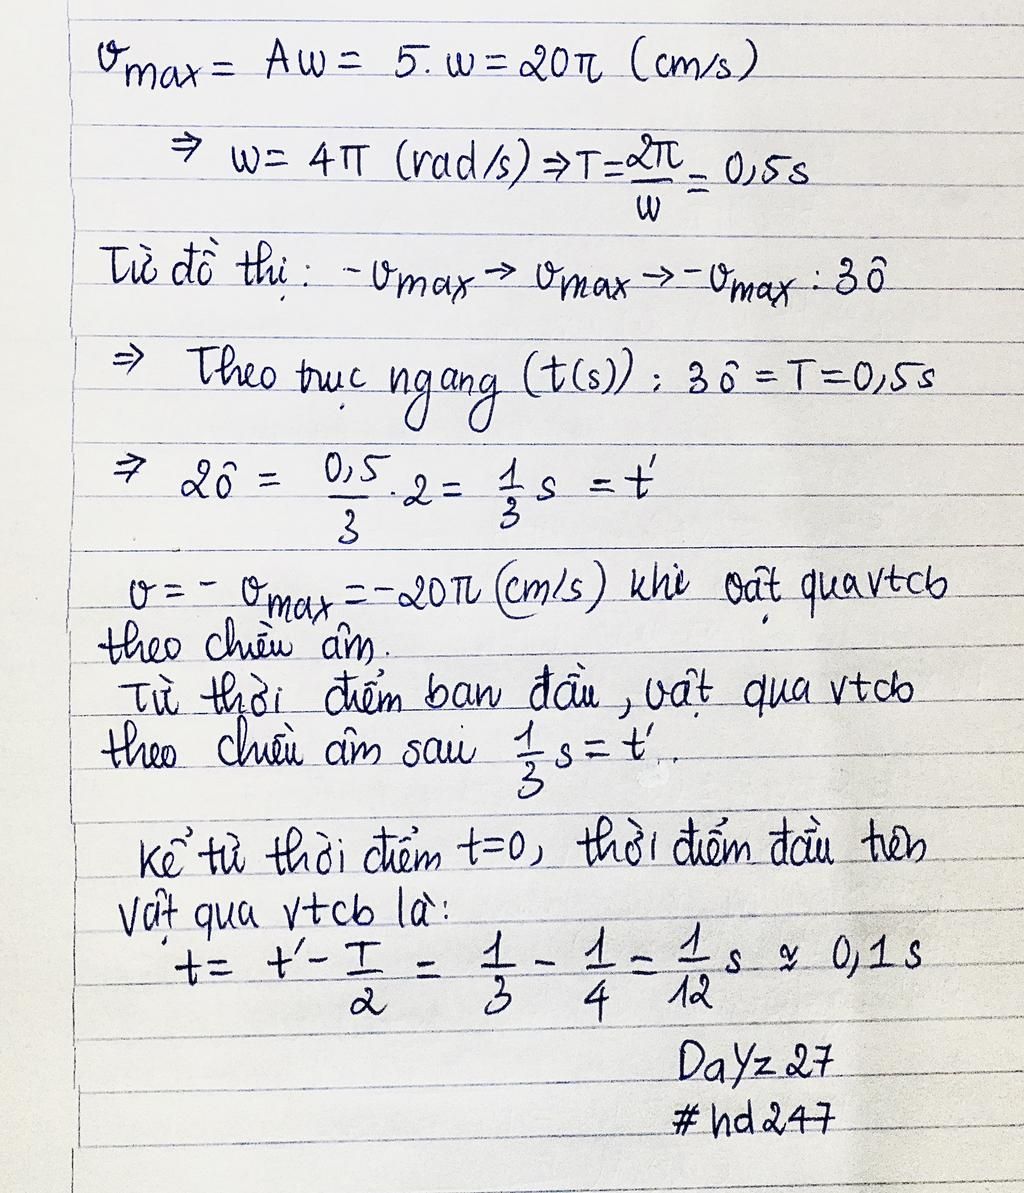 v_max = Aw = 5.w = 20π (cm/s)
⇒ w = 4π (rad/s) ⇒ T = 2π/w = 0,5s
Từ đồ thị: -v_max → v_max → -v_max : 3 ô
⇒ Theo trục ngang (t(s)) : 3 ô = T = 0,5s
⇒ 2 ô = 0,5/3 . 2 = 1/3 s = t'
v = - v_max = -20π (cm/s) khi vật qua vtcb
theo chiều âm.
Từ thời điểm ban đầu, vật qua vtcb
theo chiều âm sau 1/3 s = t'..
Kể từ thời điểm t=0, thời điểm đầu tiên
vật qua vtcb là:
t = t' - T/2 = 1/3 - 1/4 = 1/12 s ≈ 0,1 s
DaYz27
#hd247